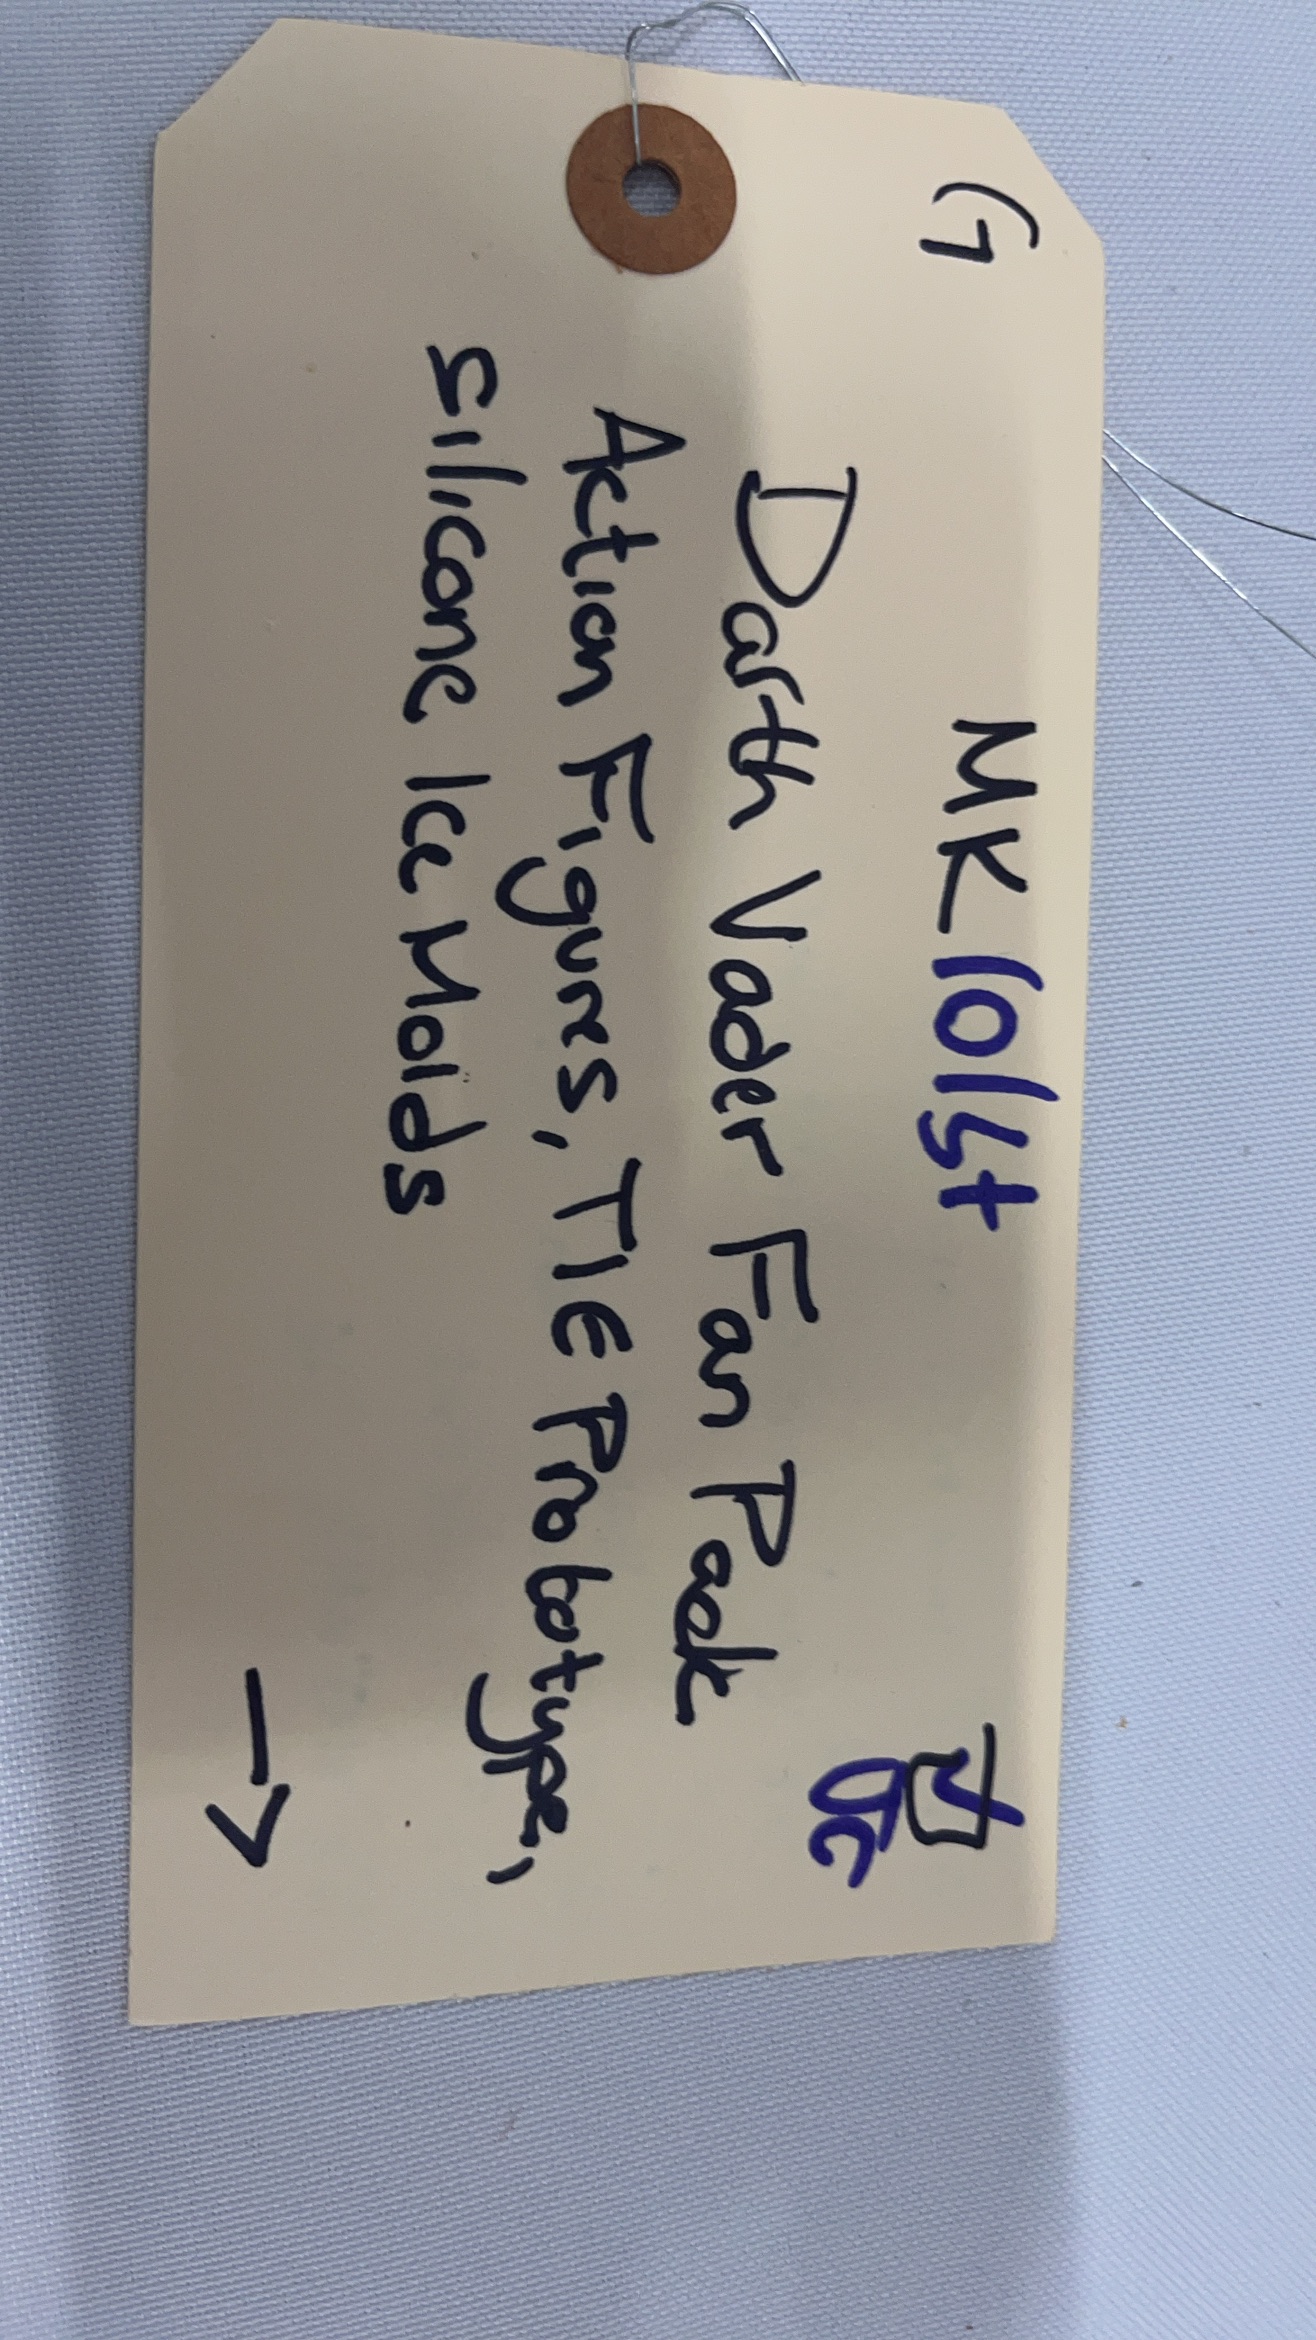 G MK10154
Darth Vader Fan Pack
Action Figures, TIE Prototype,
Silicone Ice Molds
→